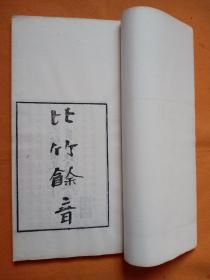 比竹餘音